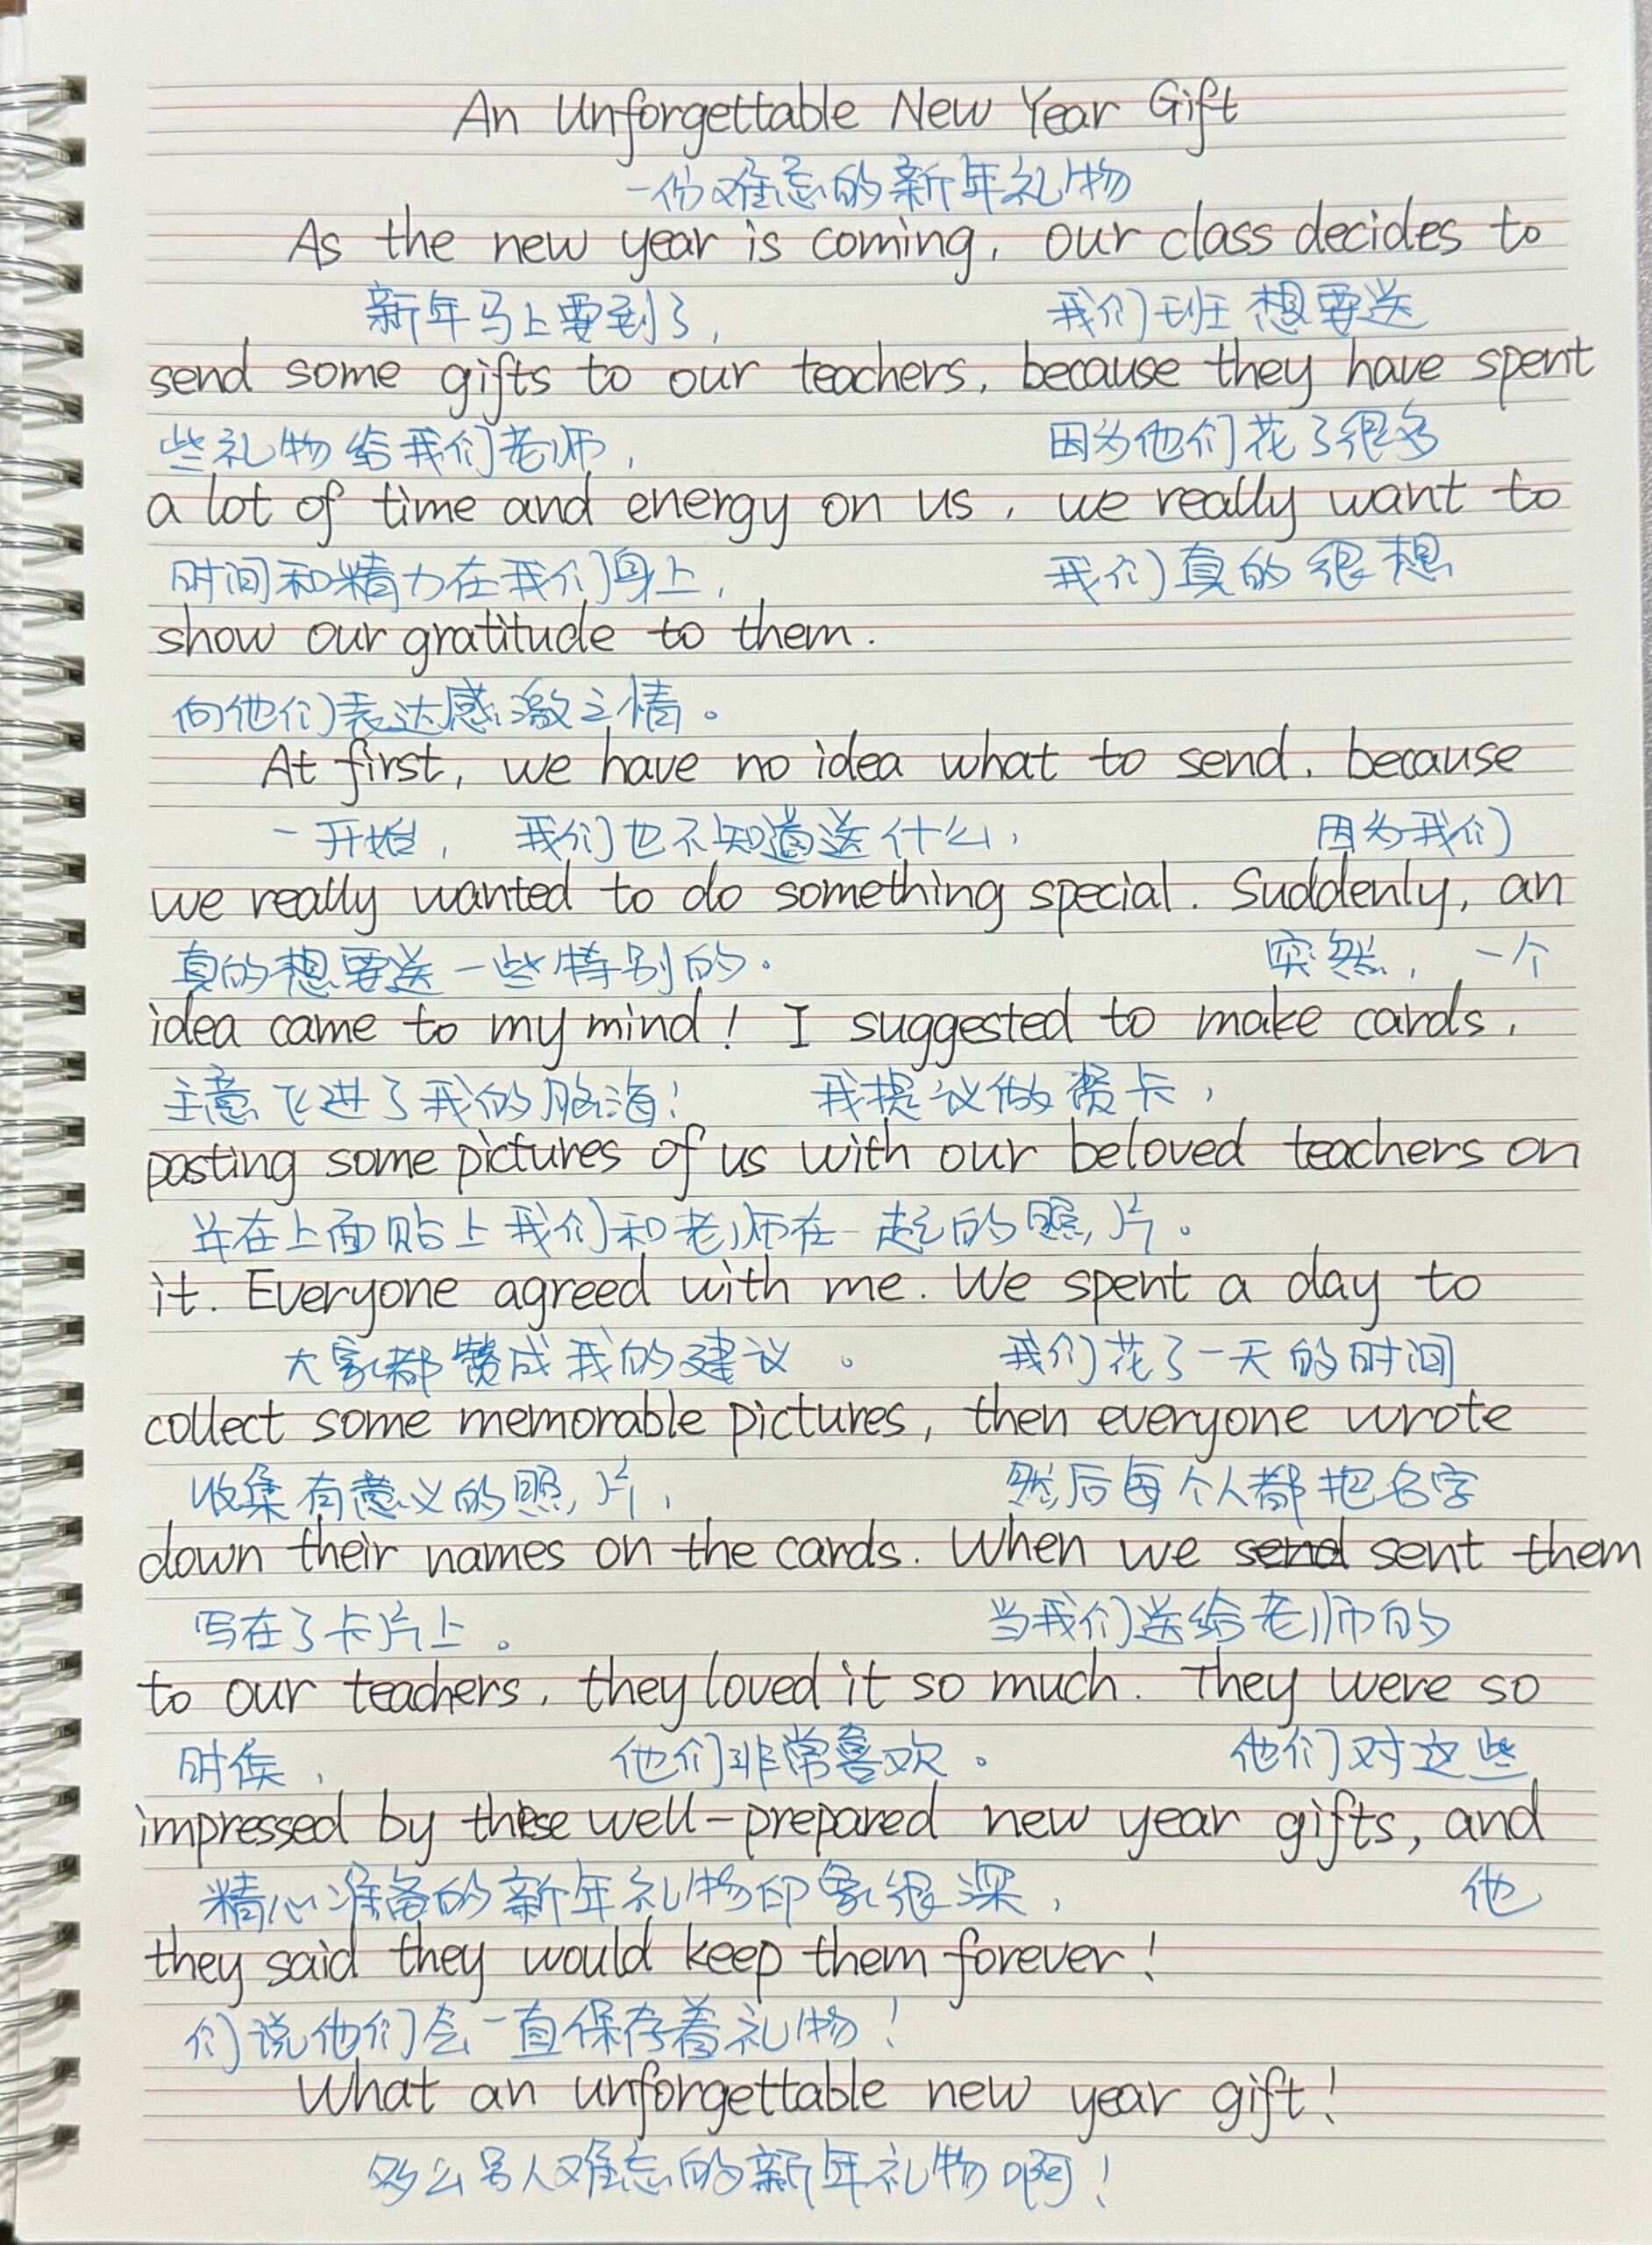 An Unforgettable New Year Gift
一份难忘的新年礼物
As the new year is coming, our class decides to
新年马上要到了, 我们班想要送
send some gifts to our teachers, because they have spent
些礼物给我们老师, 因为他们花了很多
a lot of time and energy on us, we really want to
时间和精力在我们身上, 我们真的很想
show our gratitude to them.
向他们表达感激之情。
At first, we have no idea what to send, because
一开始, 我们也不知道送什么, 因为我们
we really wanted to do something special. Suddenly, an
真的想要送一些特别的. 突然, 一个
idea came to my mind! I suggested to make cards,
主意飞进了我的脑海! 我提议做贺卡,
pasting some pictures of us with our beloved teachers on
并在上面贴上我们和老师在一起的照片。
it. Everyone agreed with me. We spent a day to
大家都赞成我的建议。 我们花了一天的时间
collect some memorable pictures, then everyone wrote
收集有意义的照片, 然后每个人都把名字
down their names on the cards. When we send sent them
写在了卡片上。 当我们送给老师的
to our teachers, they loved it so much. They were so
时候, 他们非常喜欢。 他们对这些
impressed by these well-prepared new year gifts, and
精心准备的新年礼物印象很深, 他
they said they would keep them forever!
们说他们会一直保存着礼物!
What an unforgettable new year gift!
多么另人难忘的新年礼物啊!